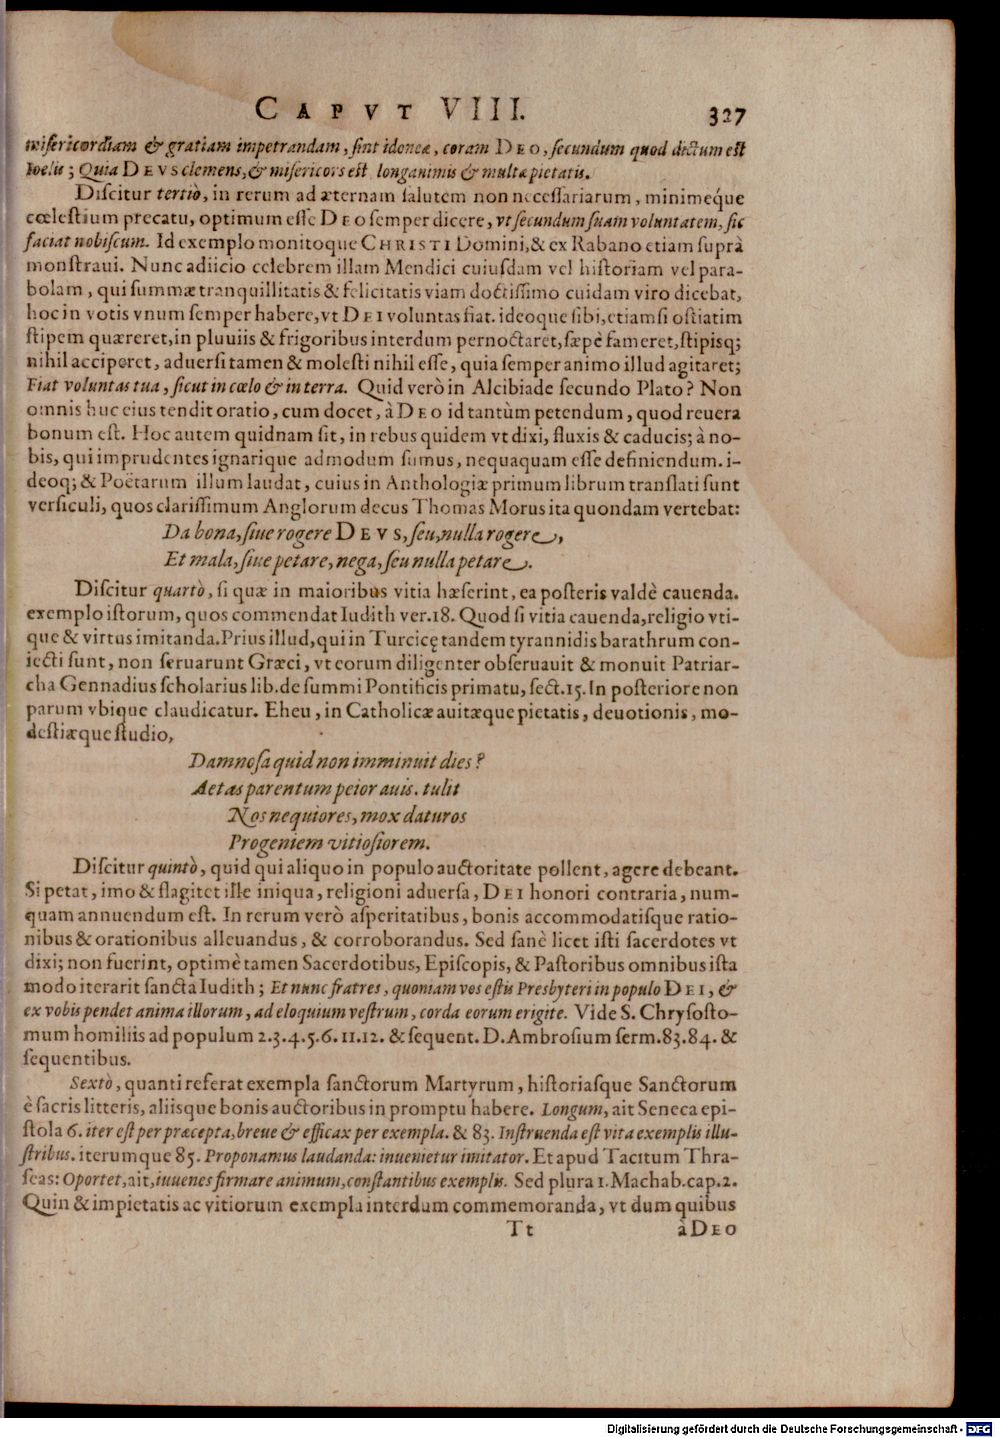 CAPVT VIII. 327
misericordiam & gratiam impetrandam, sint idoneæ, coram DEO, secundum quod dictum est
Ioelis; Quia DEVS clemens, & misericors est, longanimis & multæ pietatis.
Discitur tertiò, in rerum ad æternam salutem non necessariarum, miniméque
cœlestium precatu, optimum esse DEO semper dicere, vt secundum suam voluntatem, sic
faciat nobiscum. Id exemplo monitoque CHRISTI Domini, & ex Rabano etiam suprà
monstraui. Nunc adiicio celebrem illam Mendici cuiusdam vel historiam vel para-
bolam, qui summæ tranquillitatis & felicitatis viam doctissimo cuidam viro dicebat,
hoc in votis vnum semper habere, vt DEI voluntas fiat. ideoque sibi, etiamsi ostiatim
stipem quæreret, in pluuiis & frigoribus interdum pernoctaret, sæpè fameret, stipisq;
nihil acciperet, aduersi tamen & molesti nihil esse, quia semper animo illud agitaret;
Fiat voluntas tua, sicut in cœlo & in terra. Quid verò in Alcibiade secundo Plato? Non
omnis huc eius tendit oratio, cum docet, à DEO id tantùm petendum, quod reuera
bonum est. Hoc autem quidnam sit, in rebus quidem vt dixi, fluxis & caducis; à no-
bis, qui imprudentes ignarique admodum sumus, nequaquam esse definiendum. i-
deoq; & Poëtarum illum laudat, cuius in Anthologiæ primum librum translati sunt
versiculi, quos clarissimum Anglorum decus Thomas Morus ita quondam vertebat:
Da bona, siue rogere DEVS, seu, nulla rogere,
Et mala, siue petare, nega, seu nulla petare.
Discitur quartò, si quæ in maioribus vitia hæserint, ea posteris valdè cauenda.
exemplo istorum, quos commendat Iudith ver. 18. Quod si vitia cauenda, religio vti-
que & virtus imitanda. Prius illud, qui in Turcicę tandem tyrannidis barathrum con-
iecti sunt, non seruarunt Græci, vt eorum diligenter obseruauit & monuit Patriar-
cha Gennadius scholarius lib. de summi Pontificis primatu, sect. 15. In posteriore non
parum vbique claudicatur. Eheu, in Catholicæ auitæque pietatis, deuotionis, mo-
destiæque studio,
Damnosa quid non imminuit dies?
Aetas parentum peior auis. tulit
Nos nequiores, mox daturos
Progeniem vitiosiorem.
Discitur quintò, quid qui aliquo in populo auctoritate pollent, agere debeant.
Si petat, imo & flagitet ille iniqua, religioni aduersa, DEI honori contraria, num-
quam annuendum est. In rerum verò asperitatibus, bonis accommodatisque ratio-
nibus & orationibus alleuandus, & corroborandus. Sed sanè licet isti sacerdotes vt
dixi; non fuerint, optimè tamen Sacerdotibus, Episcopis, & Pastoribus omnibus ista
modo iterarit sancta Iudith; Et nunc fratres, quoniam vos estis Presbyteri in populo DEI, &
ex vobis pendet anima illorum, ad eloquium vestrum, corda eorum erigite. Vide S. Chrysosto-
mum homiliis ad populum 2. 3. 4. 5. 6. 11. 12. & sequent. D. Ambrosium serm. 83. 84. &
sequentibus.
Sextò, quanti referat exempla sanctorum Martyrum, historiasque Sanctorum
è sacris litteris, aliisque bonis auctoribus in promptu habere. Longum, ait Seneca epi-
stola 6. iter est per præcepta, breue & efficax per exempla. & 83. Instruenda est vita exemplis illu-
stribus. iterumque 85. Proponamus laudanda: inuenietur imitator. Et apud Tacitum Thra-
seas: Oportet, ait, iuuenes firmare animum, constantibus exemplis. Sed plura 1. Machab. cap. 2.
Quin & impietatis ac vitiorum exempla interdum commemoranda, vt dum quibus
Tt à DEO
Digitalisierung gefördert durch die Deutsche Forschungsgemeinschaft - DFG